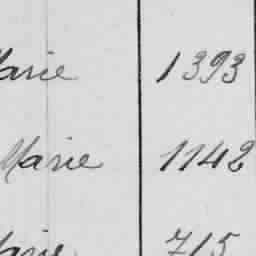 Marie 1393
Marie 1142
Marie 715